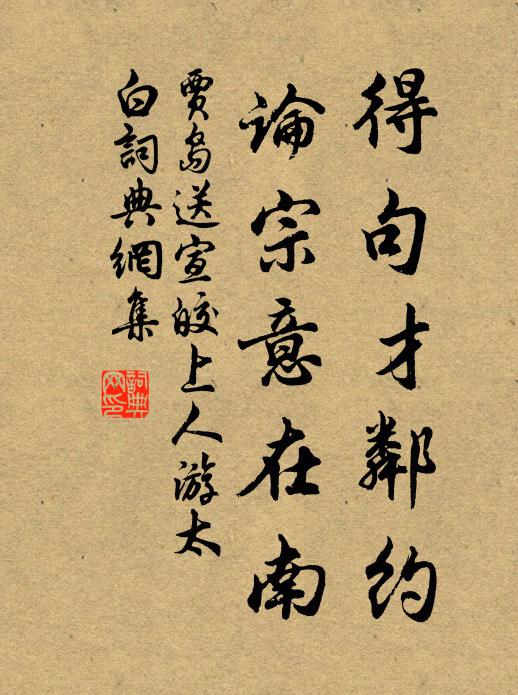 得句才鄰約
論宗意在南
賈島送宣皎上人游太
白詞典網集
詞典
网印